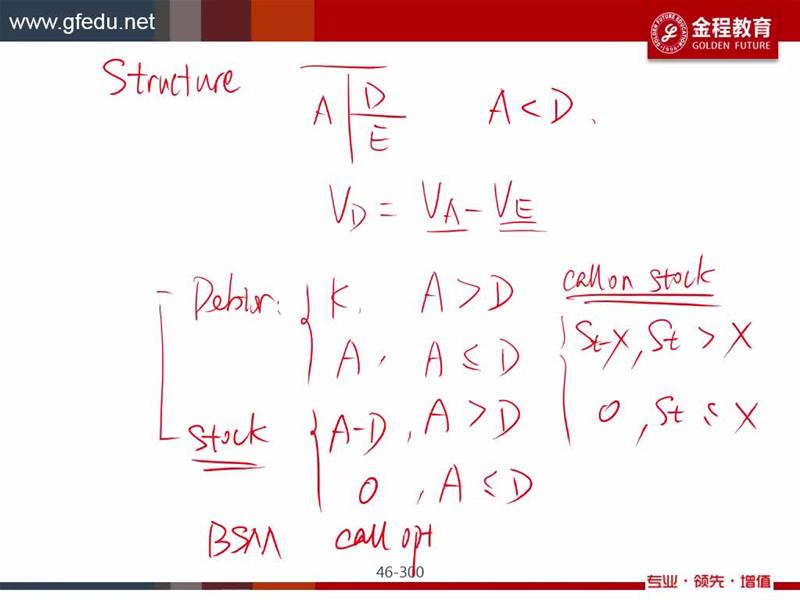 www.gfedu.net
金程教育
GOLDEN FUTURE
Structure
A D E A < D.
V_D = V_A - V_E
call on stock
K, A > D
A, A ≤ D
St-X, St > X
0, St ≤ X
Stock A-D, A > D
0, A ≤ D
BSM call opt
46-300
专业·领先·增值